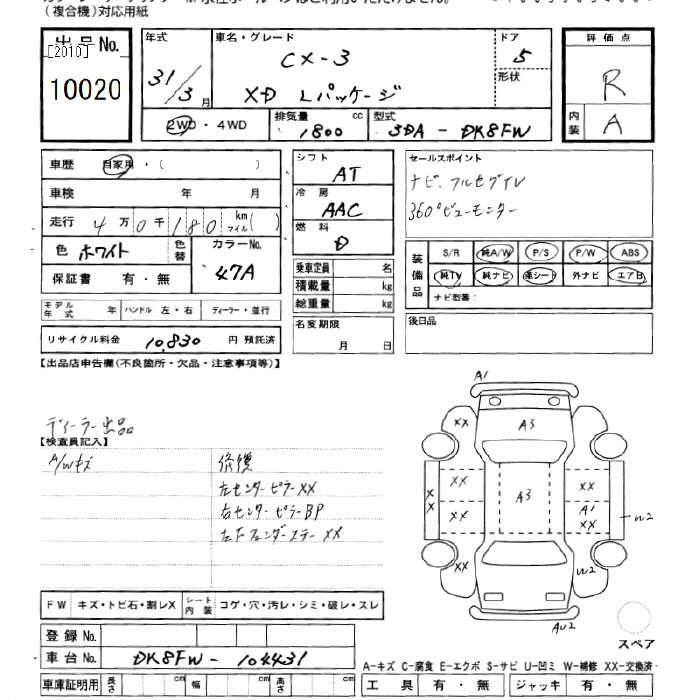 （複合機）対応用紙
出品No.
[2010]
10020
年式
31/3月
車名・グレード
CX-3
XD Lパッケージ
ドア
5
形状
評価点
R
内装
A
2WD・4WD
排気量 cc
1800
型式
3DA-DK8FW
車歴 自家用・（ ）
車検 年 月
走行 4万0千180 km マイル（ ）
色 ホワイト
色替
カラーNo.
47A
保証書 有・無
モデル年式 年 ハンドル 左・右 ディーラー・並行
リサイクル料金 10,830 円 預託済
シフト
AT
冷房
AAC
燃料
D
乗車定員 名
積載量 kg
総重量 kg
名変期限
月 日
セールスポイント
ナビ、フルセグTV
360°ビューモニター
装備品
S/R 純A/W P/S P/W ABS
純TV 純ナビ 革シート 外ナビ エアB
ナビ型番：
後日品
【出品店申告欄(不良箇所・欠品・注意事項等)】
ディーラー出品
【検査員記入】
A/Wキズ
修復
左センターピラーXX
右センターピラーBP
左Fフェンダーステー XX
A1
XX
A3
XX
XX
XX
XX
A3
XX
A1
XX
W2
XX
W2
AW2
スペア
FW キズ・トビ石・割レX シート内装 コゲ・穴・汚レ・シミ・破レ・スレ
登録No.
車台No. DK8FW-104431
車庫証明用 長さ cm 幅 cm 高さ cm
A-キズ C-腐食 E-エクボ S-サビ U-凹ミ W-補修 XX-交換済
工具 有・無 ジャッキ 有・無